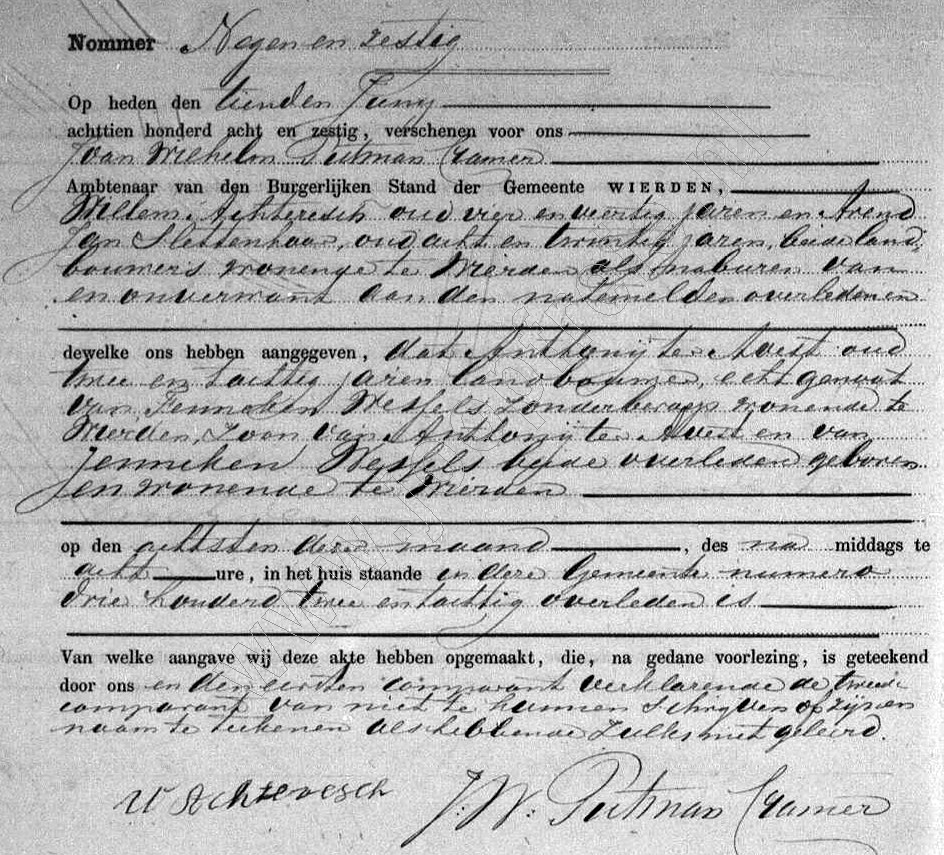 Nommer Negen en zestig
Op heden den tienden Juny
achttien honderd acht en zestig, verschenen voor ons
Jvan Wilhelm Putman Cramer
Ambtenaar van den Burgerlijken Stand der Gemeente WIERDEN,
Willem Achteresch oud vier en veertig jaren en Arend
Jan Slettenhaar, oud acht en twintig jaren, beide land
bouwers wonende te Wierden als naburen van
en onverwant aan den natemelden overledenen
dewelke ons hebben aangegeven, dat Anthonij te Avest oud
twee en tachtig jaren landbouwer, echtgenoot
van Fenneken Wessels zonder beroep wonende te
Wierden, zoon van Anthonij te Avest en van
Jenneken Wessels beide overleden geboren
en wonende te Wierden
op den achtsten dezer maand, des na middags te
acht ure, in het huis staande in deze Gemeente numero
drie honderd twee en tachtig overleden is
Van welke aangave wij deze akte hebben opgemaakt, die, na gedane voorlezing, is geteekend
door ons en den eersten comparant verklarende de tweede
comparant van niet te kunnen schrijven of zijnen
naam te teekenen als hebbende zulks niet geleerd.
W Achteresch J. W. Putman Cramer